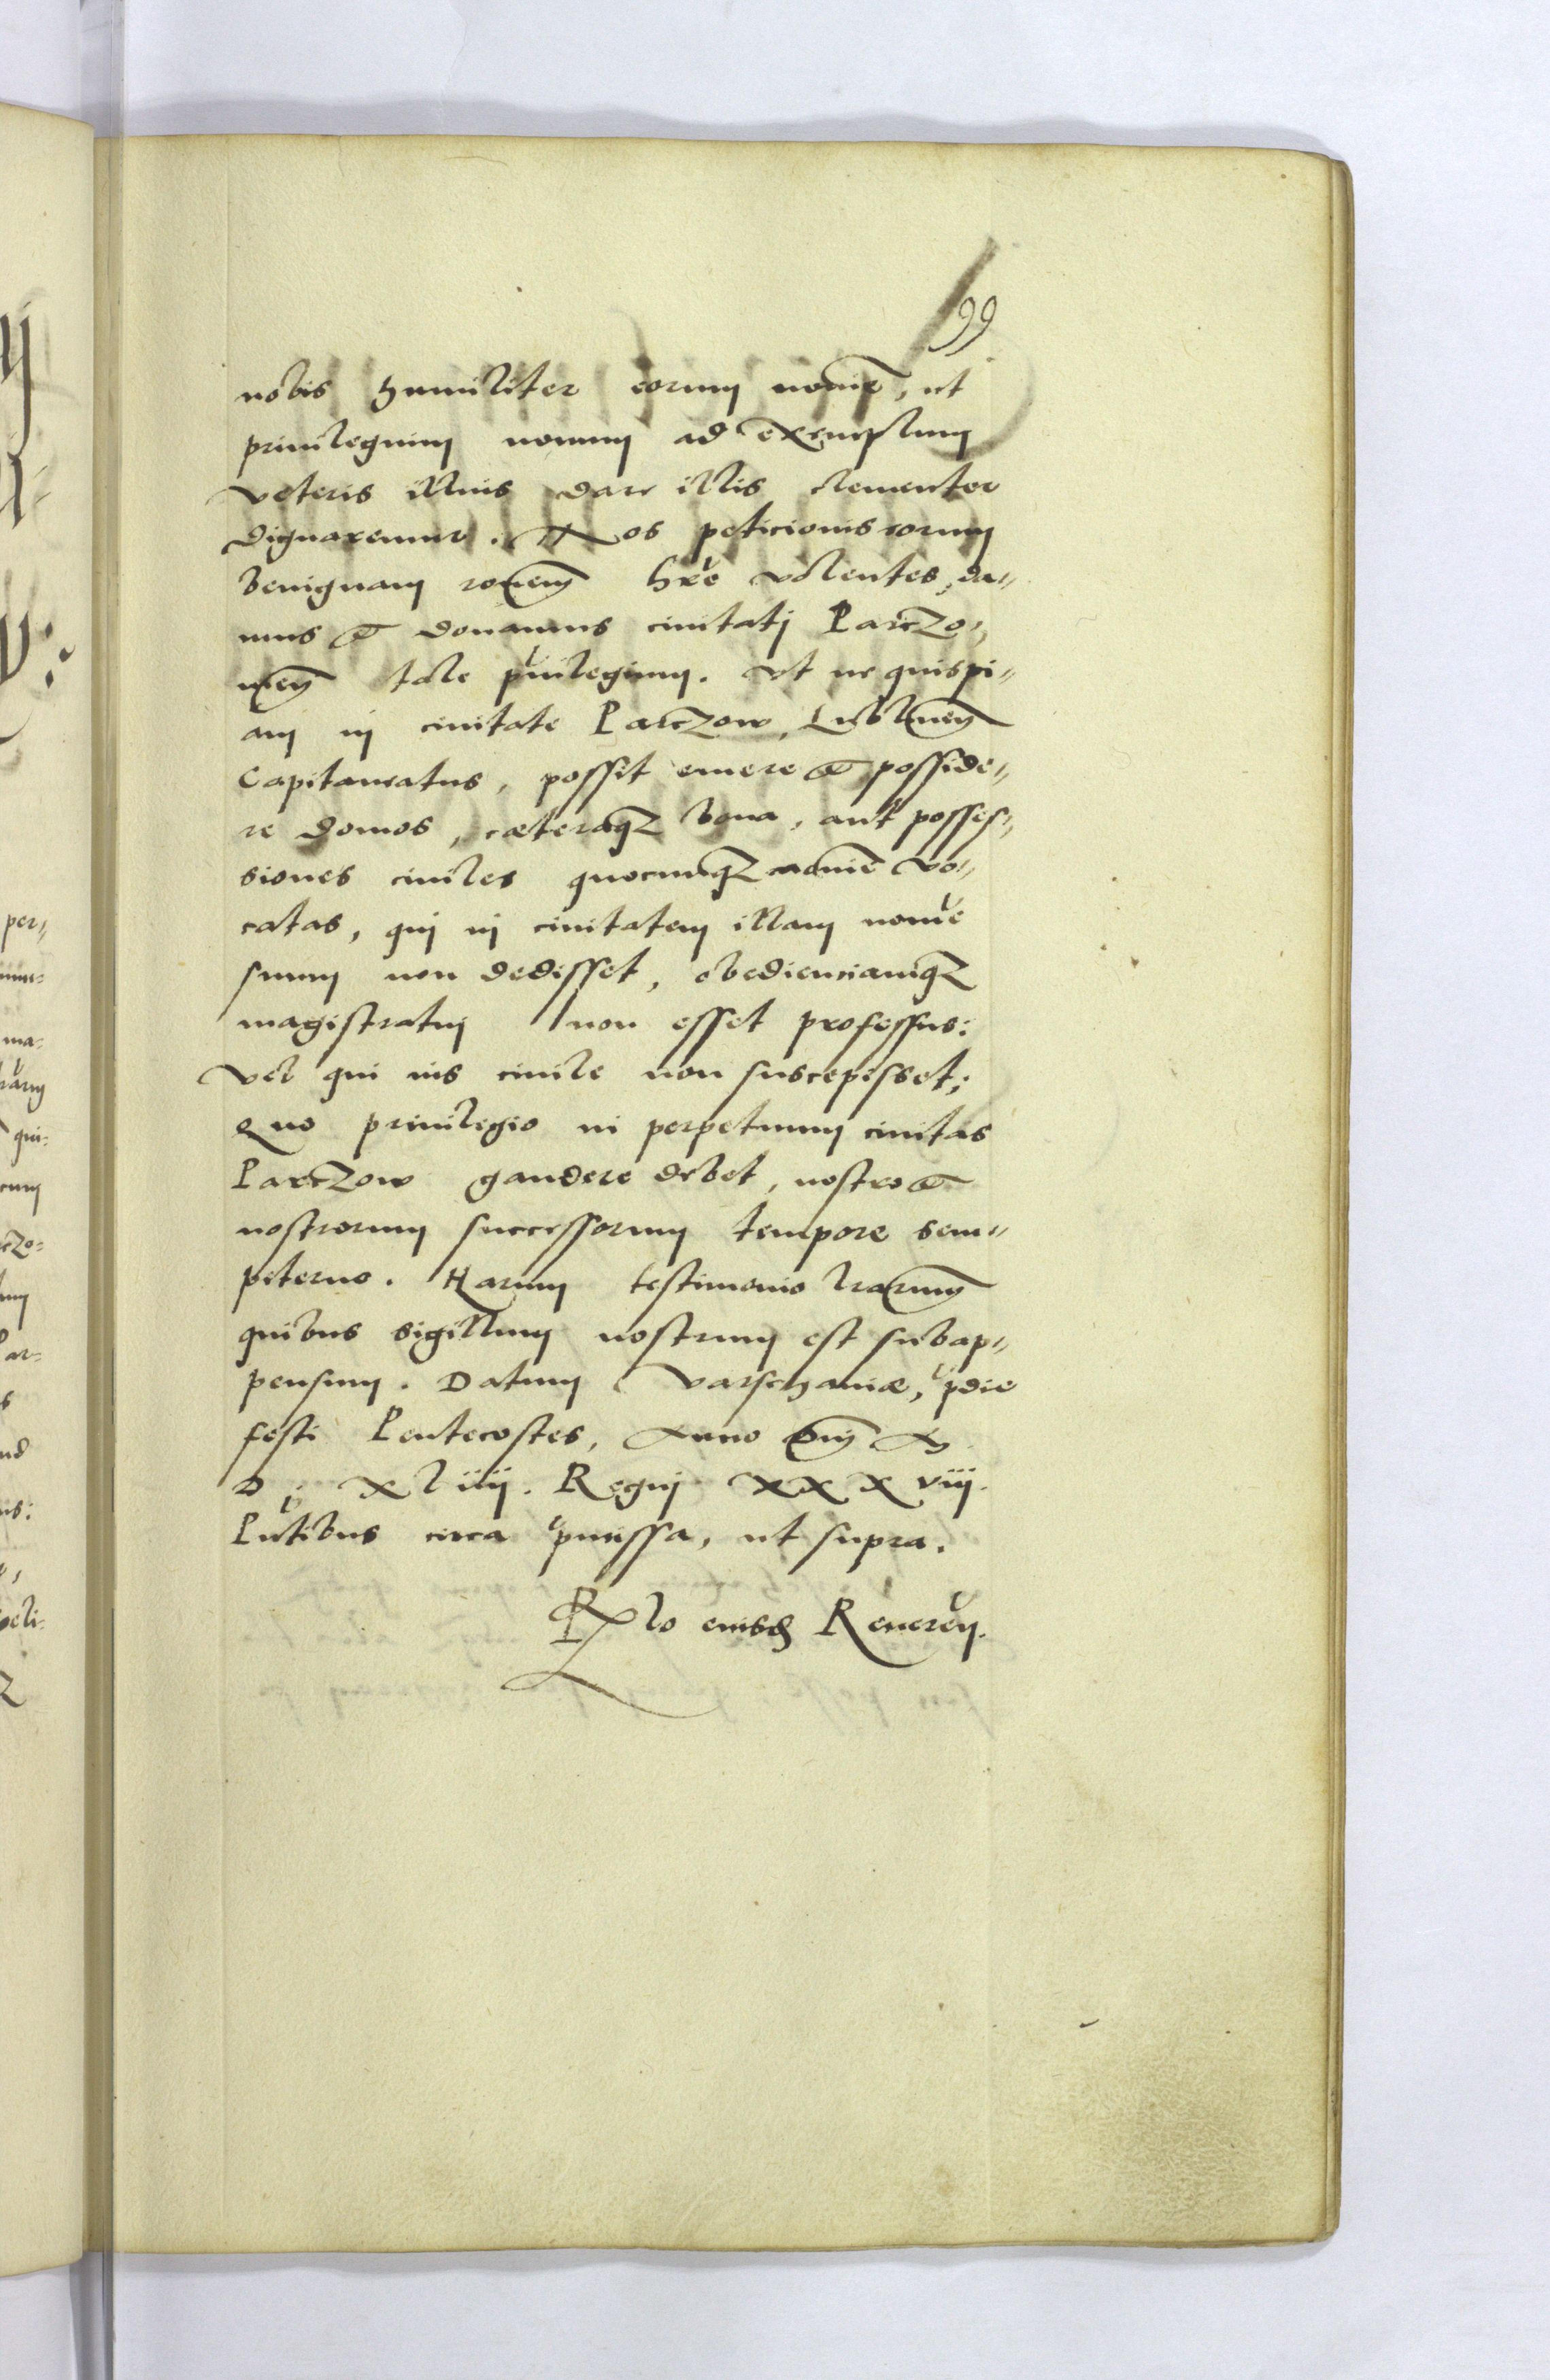 99
nobis humiliter eorum noīe, ut
priuilegium nouum ad exemplum
veteris illius dare illis clementer
dignaremur. Nos peticionis eorum
benignam rōnem hr̄e volentes, da„
mus et donamus ciuitatj Parczo„
uien̄ tale pūilegium. Vt ne quispi„
am in ciuitate Parczow, Lublinen̄
Capitaneatus, possit emere et posside„
re domos, cæteraq₃ bona, aut posses„
siones ciuiles quocunq₃ noīe vo„
catas, quj in ciuitatem illam nome
suum non dedisset, obedienciamq₃
magistratuj non esset professus:
vel qui ius ciuile non suscepisset;
Quo priuilegio in perpetuum ciuitas
Parczow gaudere debet, nostro et
nostrorum successorum tempore sem„
piterno. Harum testimonio lrarum̄
quibus sigillum nostrum est subap„
pensum. Datum Varschauiæ, p̄die
festi Pentecostes, Anno Dnj M
D. xliiij. Regnj xxxviij.
Pn̄tibus circa p̄missa, ut supra.
Rlo eiusd Reueren.
per„
ma:
qui:
rczo:
ar:
eli: